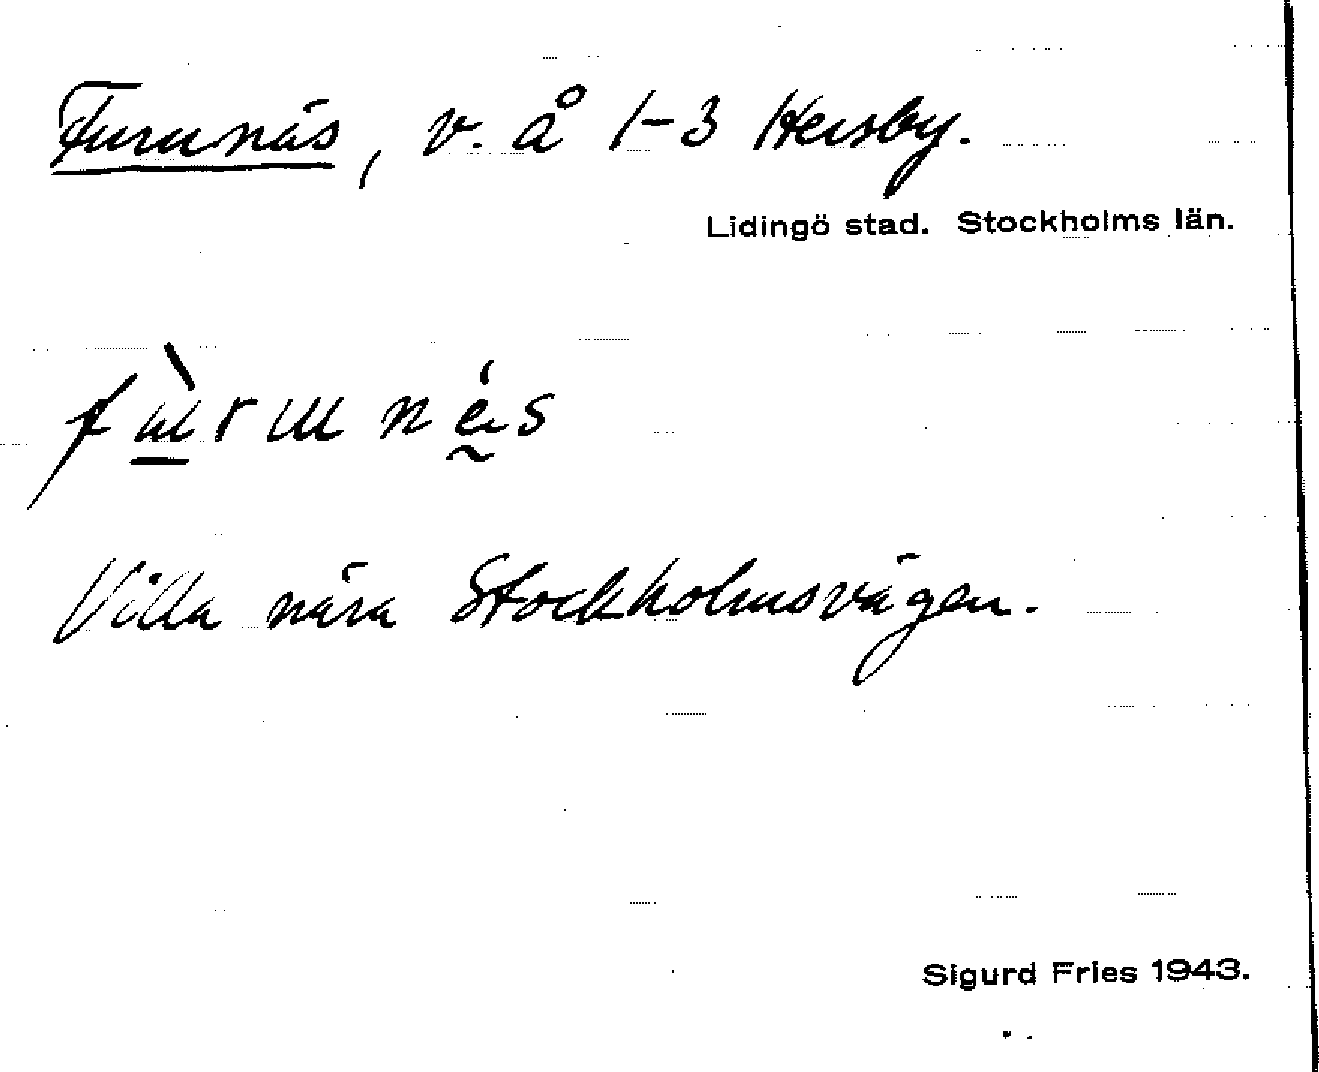 Furunäs, v. å 1-3 Hersby.
Lidingö stad. Stockholms län.
Villa nära Stockholmsvägen.
Sigurd Fries 1943.